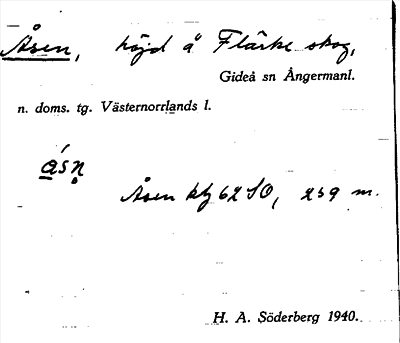 Åsen, höjd å Flärke skog,
Gideå sn Ångermanl.
n. doms. tg. Västernorrlands l.
ásn̥
Åsen kbl 62 SO, 259 m.
H. A. Söderberg 1940.